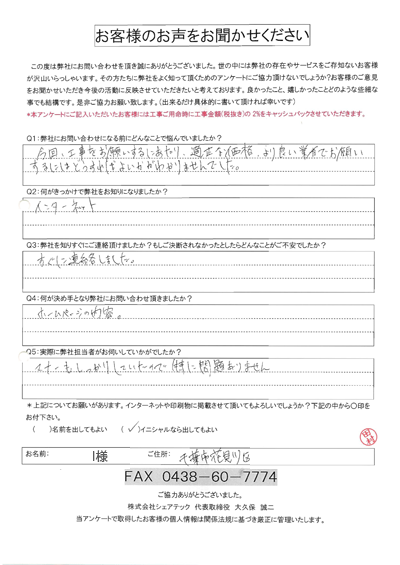 お客様のお声をお聞かせください
この度は弊社にお問い合わせを頂き誠にありがとうございました。世の中には弊社の存在やサービスをご存知ないお客様
が沢山いらっしゃいます。その方たちに弊社をよく知って頂くためのアンケートにご協力頂けないでしょうか？お客様のご意見
をお聞かせいただき今後の活動に反映させていただきたいと考えております。良かったこと、嬉しかったことのような些細な
事でも結構です。是非ご協力お願い致します。（出来るだけ具体的に書いて頂ければ幸いです）
*本アンケートにご記入いただいたお客様には工事ご用命時に工事金額(税抜き)の2%をキャッシュバックさせていただきます。
Q1：弊社にお問い合わせになる前にどんなことで悩んでいましたか？
今回、工事をお願いするにあたり、適正な価格、より良い業者でお願い
するにはどうすればよいかがわかりませんでした。
Q2：何がきっかけで弊社をお知りになりましたか？
インターネット
Q3：弊社を知りすぐにご連絡頂けますか？もしご決断されなかったとしたらどんなことがご不安でしたか？
すぐに連絡しました。
Q4：何が決め手となり弊社にお問い合わせ頂きましたか？
ホームページの内容。
Q5：実際に弊社担当者がお伺いしていかがでしたか？
マナーもしっかりしていたので特に問題ありません
*上記についてお願いがあります。インターネットや印刷物に掲載させて頂いてもよろしいでしょうか？下記の中から〇印を
お付下さい。
（　）名前を出してもよい　（✓）イニシャルなら出してもよい
お名前：　I様　ご住所：　千葉市花見川区
FAX 0438-60-7774
ご協力ありがとうございました。
株式会社シェアテック 代表取締役 大久保 誠二
当アンケートで取得したお客様の個人情報は関係法規に基づき厳正に管理いたします。